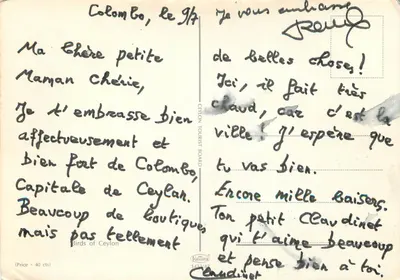 Colombo, le 9/7
Ma Chère petite
Maman Chérie,
Je t'embrasse bien
affectueusement et
bien fort de Colombo,
Capitale de Ceylan.
Beaucoup de boutiques
mais pas tellement
Birds of Ceylon
(Price - 40 cts)
CEYLON TOURIST BOARD
Je vous embrasse
de belles choses!
Ici, il fait très
chaud, car c'est la
ville! J'espère que
tu vas bien.
Encore mille baisers.
Ton petit Claudinet
qui t'aime beaucoup
et pense bien à toi.
Claudinet